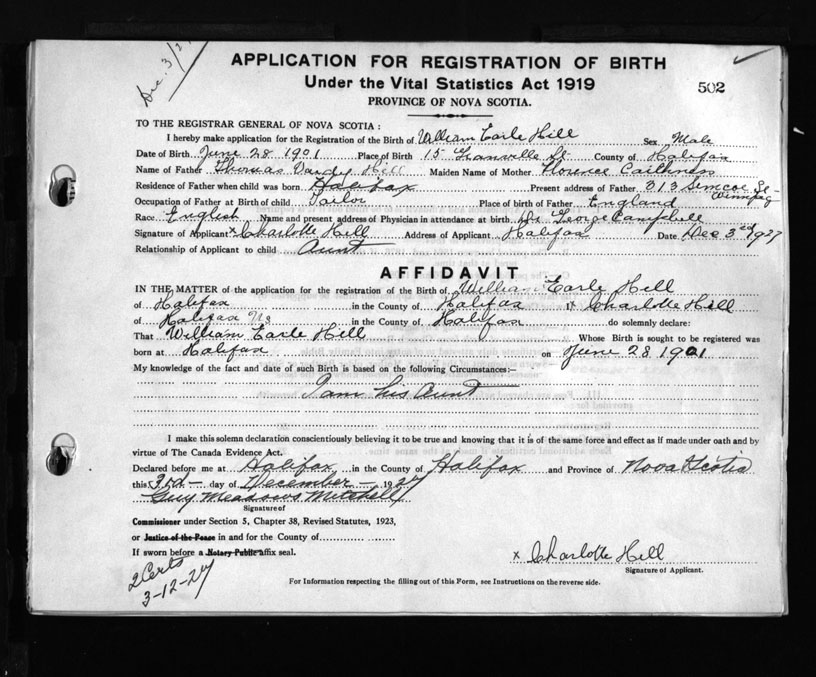 Dec. 3/27
APPLICATION FOR REGISTRATION OF BIRTH
Under the Vital Statistics Act 1919
502
PROVINCE OF NOVA SCOTIA.
TO THE REGISTRAR GENERAL OF NOVA SCOTIA :
I hereby make application for the Registration of the Birth of William Earle Hill Sex Male
Date of Birth June 28 1901 Place of Birth 15 Granville St County of Halifax
Name of Father Thomas Vardy Hill Maiden Name of Mother Florence Caithness
Residence of Father when child was born Halifax Present address of Father 313 Simcoe St
Winnipeg
Occupation of Father at Birth of child Tailor Place of birth of Father England
Race English Name and present address of Physician in attendance at birth Dr George Campbell
Signature of Applicant x Charlotte Hill Address of Applicant Halifax Date Dec 3rd 1927
Relationship of Applicant to child Aunt
AFFIDAVIT
IN THE MATTER of the application for the registration of the Birth of William Earle Hill
of Halifax in the County of Halifax I Charlotte Hill
of Halifax NS in the County of Halifax do solemnly declare:
That William Earle Hill Whose Birth is sought to be registered was
born at Halifax on June 28 1901
My knowledge of the fact and date of such Birth is based on the following Circumstances:—
I am his Aunt
I make this solemn declaration conscientiously believing it to be true and knowing that it is of the same force and effect as if made under oath and by
virtue of The Canada Evidence Act.
Declared before me at Halifax in the County of Halifax and Province of Nova Scotia
this 3rd day of December 1927
Guy Meadows Mitchell
Signature of
Commissioner under Section 5, Chapter 38, Revised Statutes, 1923,
or Justice of the Peace in and for the County of
If sworn before a Notary Public affix seal.
x Charlotte Hill
Signature of Applicant.
2 Certs
3-12-27
For Information respecting the filling out of this Form, see Instructions on the reverse side.